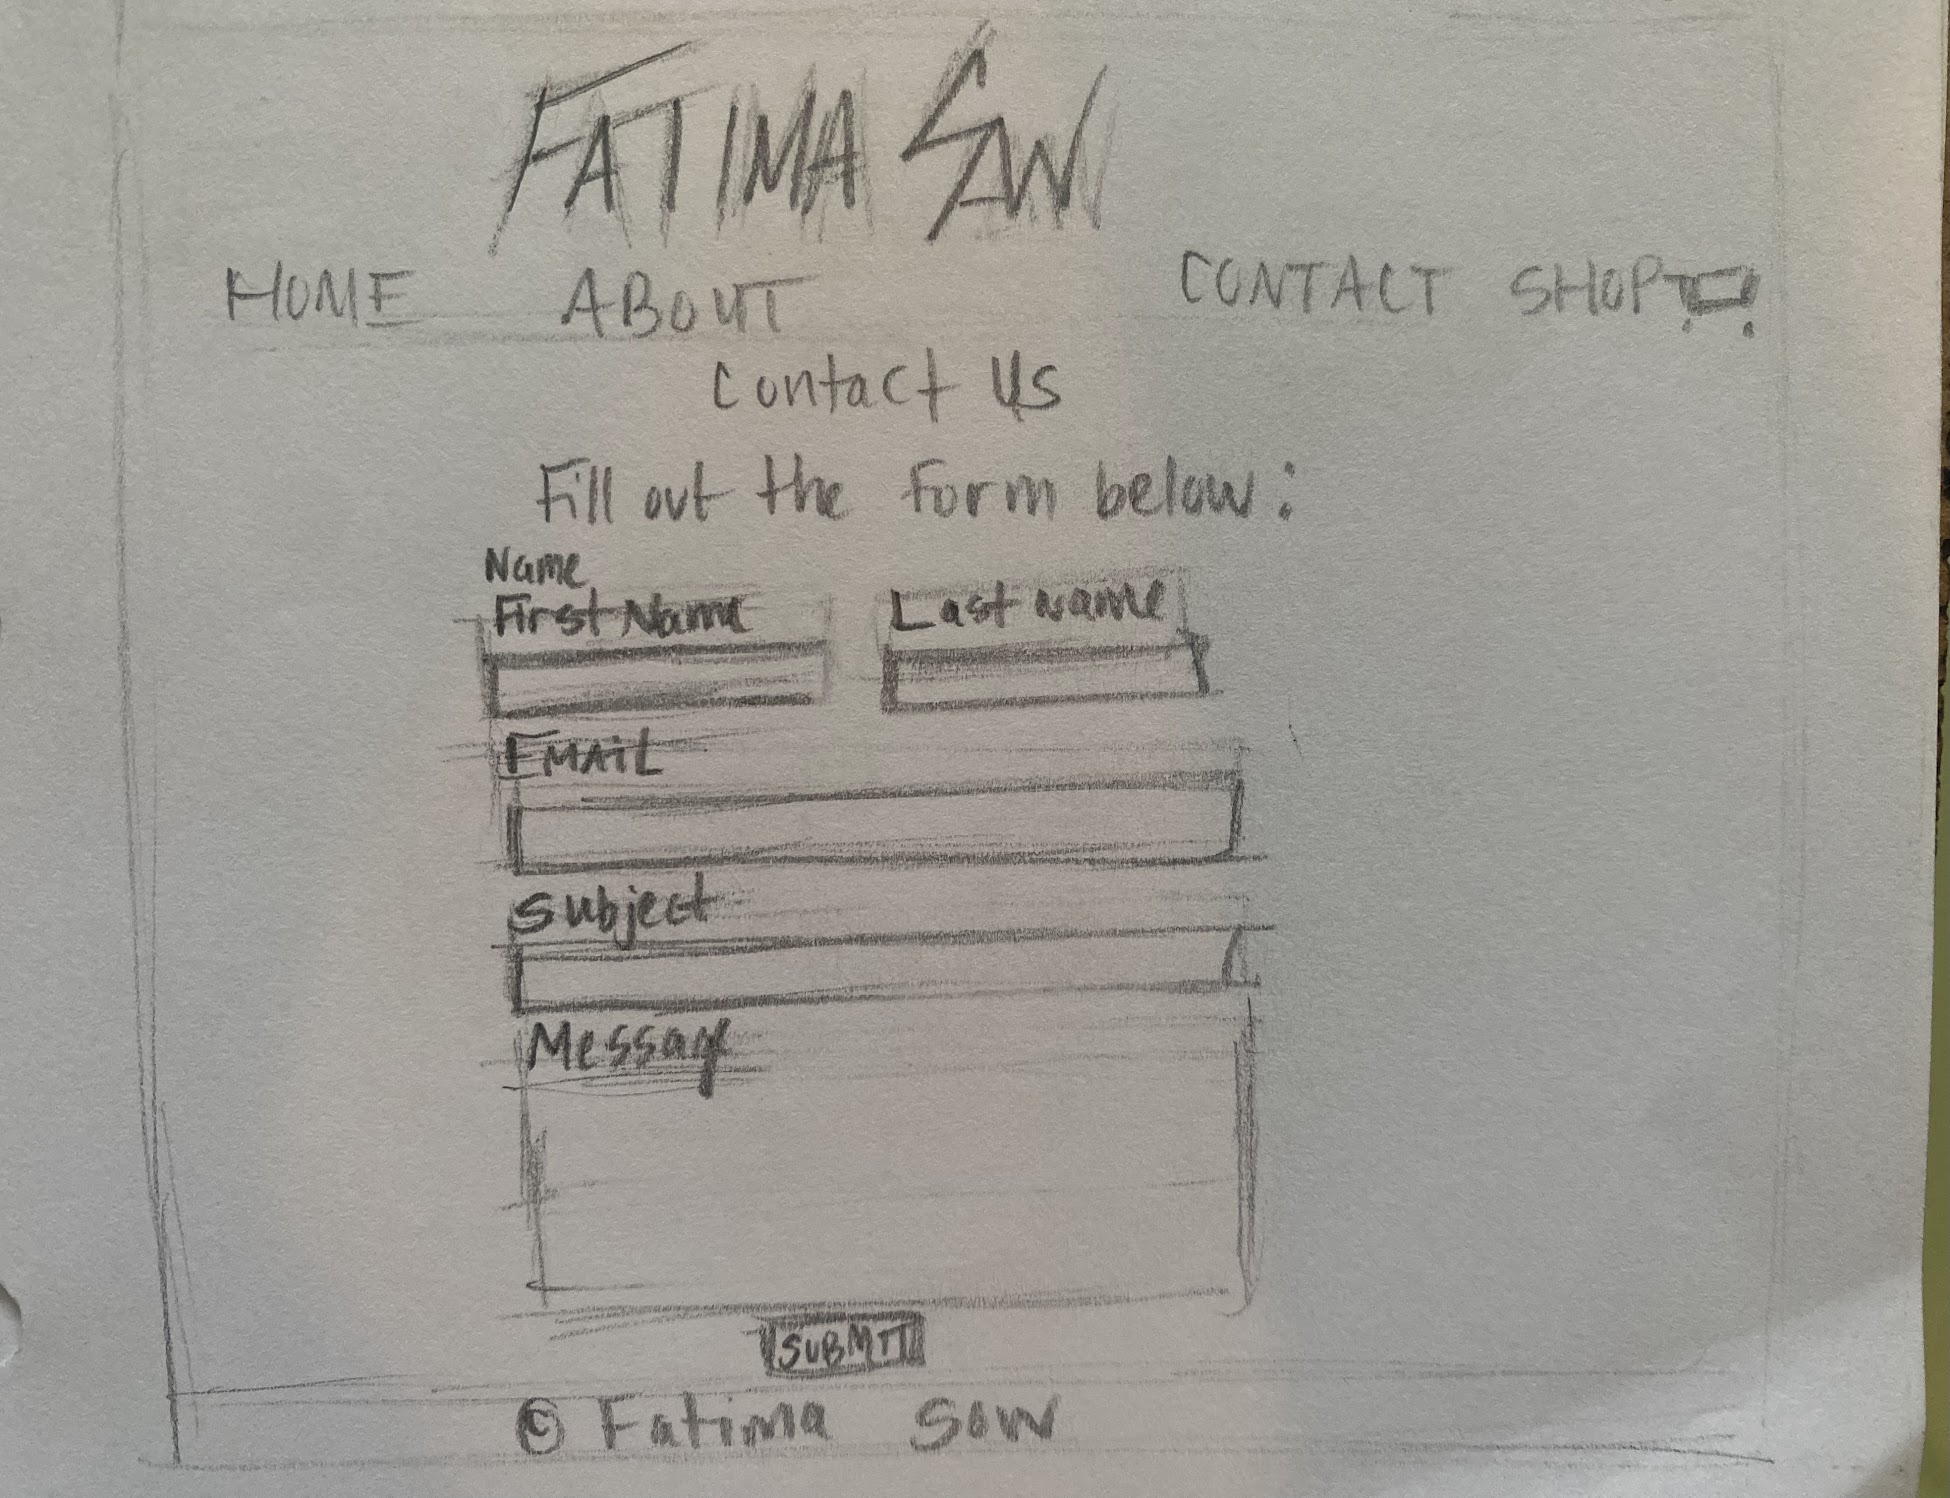 FATIMA SOW
HOME ABOUT CONTACT SHOP
Contact Us
Fill out the form below:
Name
First Name Last Name
EMAiL
Subject
Message
SUBMIT
© Fatima Sow